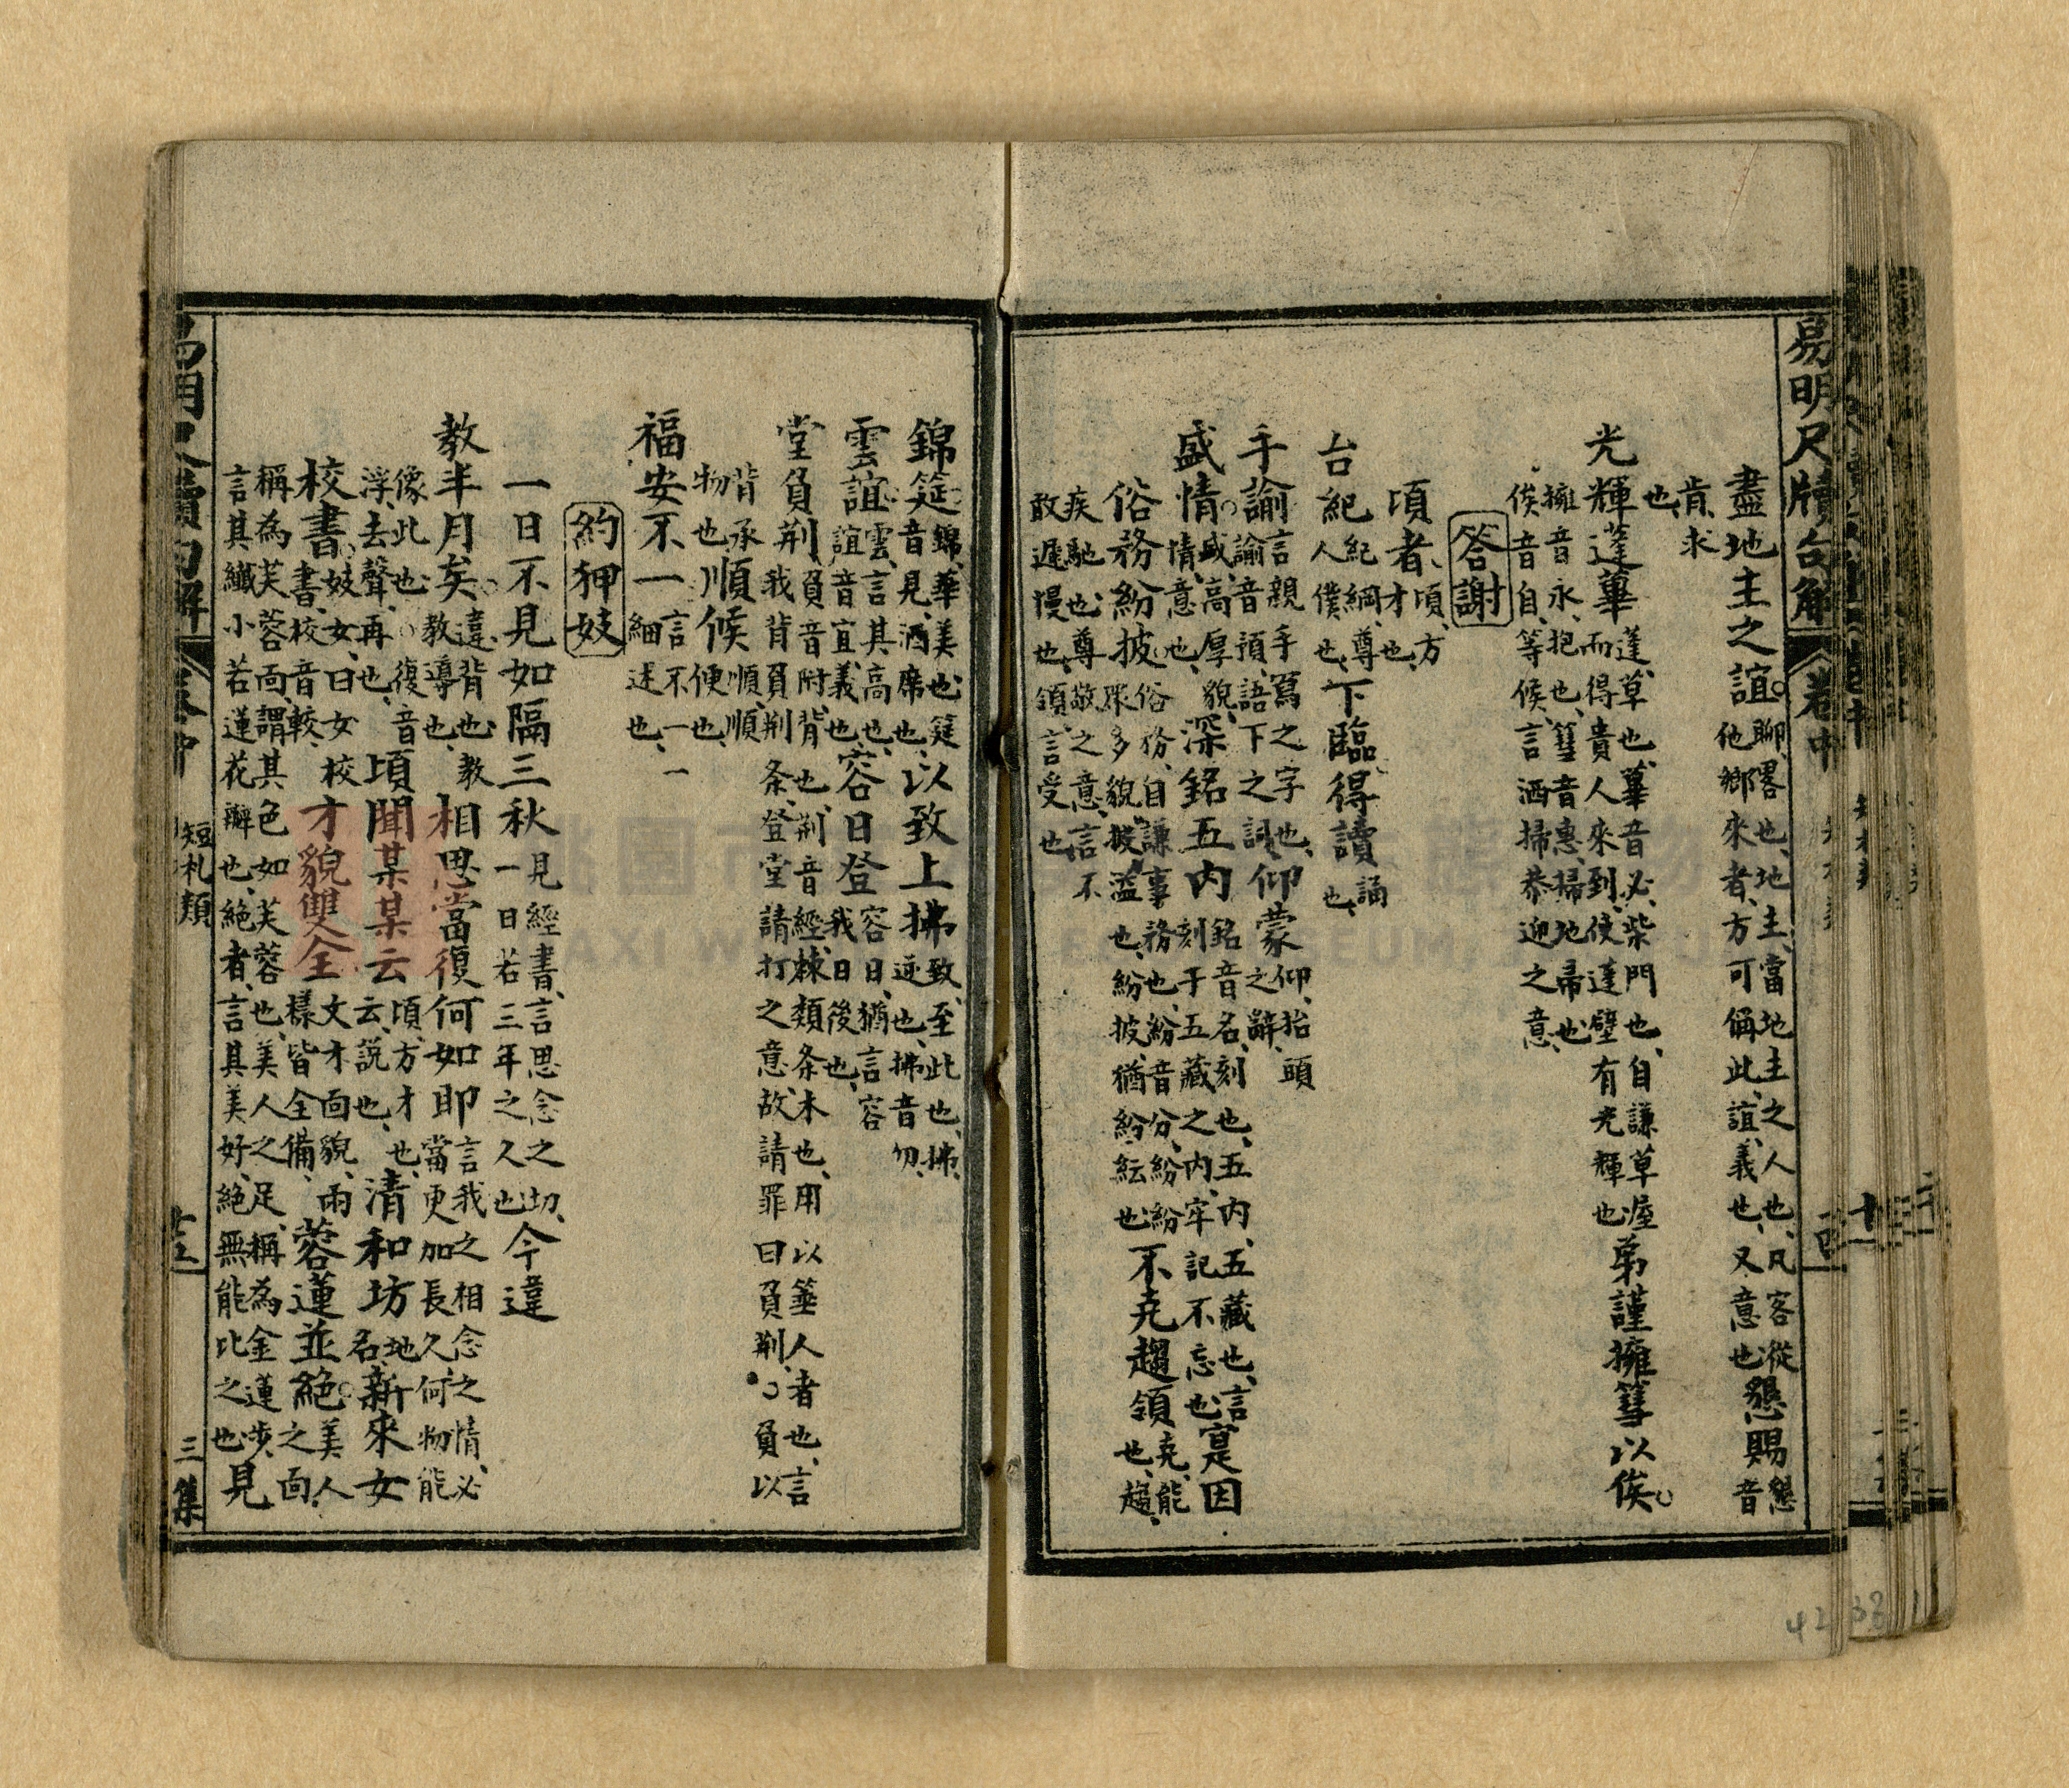 易明尺牘句解 卷中 短札類 三集
盡地主之誼聊畧也地主當地主之人也凡客從他鄉來者方可稱此誼義也又意也懇賜懇音
肯求也
光輝蓬蓽蓬草也蓽音必柴門也自謙草屋而得貴人來到使蓬壁有光輝也弟謹擁篲以俟
擁音永抱也篲音惠掃地帚也俟音自等候言洒掃恭迎之意
答謝
頃者頃方才也
台紀紀綱尊人僕也下臨得讀誦也
手諭言親手寫之字也諭音預語下之詞仰蒙仰抬頭之辭
盛情盛高厚貌情意也深銘五內銘音名刻也五內五藏也言刻于五藏之內牢記不忘也寔因
俗務紛披俗務自謙事務也紛音分紛紛眾多貌披益也紛披猶紛紜也不克趨領克能也趨
疾馳也尊敬之意言不敢遲慢也領言受也
錦筵錦華美也筵音見酒席也以致上拂致至此也拂逆也拂音勿
雲誼雲言其高也誼音宜義也容日登容日猶言容我日後也
堂負荆負音附背也荆音經棘類条木也用以箠人者也言我背負荆条登堂請打之意故請罪曰負荆負以
背承物也順候順順便也
福安不一言不一一細述也
約狎妓
一日不見如隔三秋見經書言思念之切一日若三年之久也今違
教半月矣違背也教教導也相思當復何如耶言我之相念之情必當更加長久何物能
像此也復音浮去聲再也頃聞某某云頃方才也云說也清和坊地名新來女
校書妓女曰女校書校音較才貌雙全文才面貌兩樣皆全備蓉蓮並絕美人之面
稱為芙蓉面謂其色如芙蓉也美人之足稱為金蓮步言其纖小若蓮花瓣也絕者言其美好絕無能比之也見
易明尺牘句解 卷中 短札類 廿五 三集